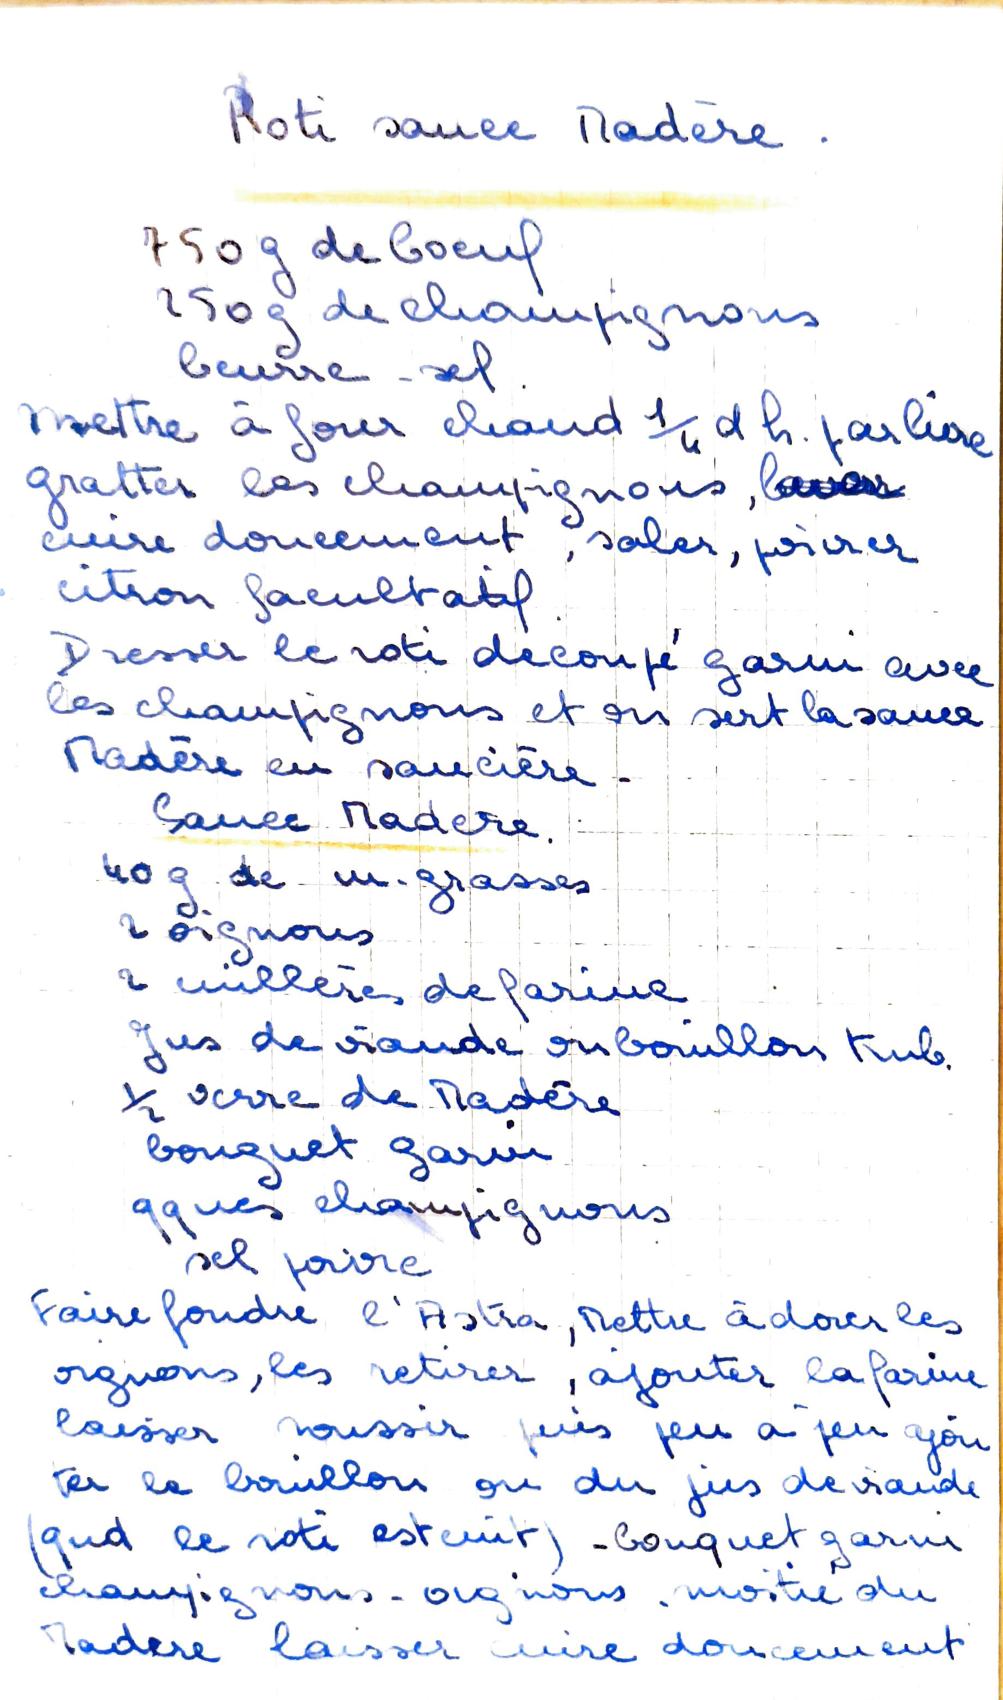 Roti sauce Madère.
750 g de boeuf
250 g de champignons
beurre - sel.
Mettre à four chaud 1/4 d h. par livre
gratter les champignons, laver
cuire doucement, saler, poivrer
citron facultatif
Dresser le roti decoupé garni avec
les champignons et on sert la sauce
Madère en saucière -
Sauce Madere.
40 g de m. grasses
2 oignons
2 cuillères de farine
Jus de viande ou bouillon Kub.
1/2 verre de Madère
bouquet garni
qques champignons
sel poivre
Faire fondre l'Astra, Mettre à dorer les
oignons, les retirer, ajouter la farine
laisser roussir puis peu à peu ajou
ter le bouillon ou du jus de viande
(qud le roti est cuit) - bouquet garni
champignons - oignons. moitié du
Madere laisser cuire doucement